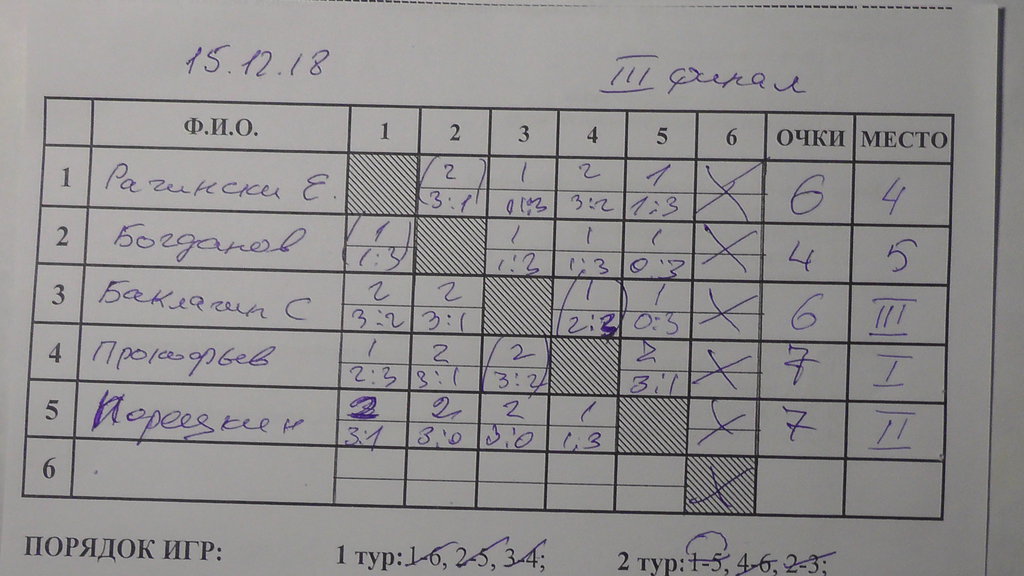 15.12.18 III финал
Ф.И.О. 1 2 3 4 5 6 ОЧКИ МЕСТО
1 Рагински Е. 2 1 2 1 6 4
3:1 3:2 1:3
2 Богданов 1 1 1 1 4 5
1:3 1:3 1:3 0:3
3 Баклагин С 2 2 1 1 6 III
3:2 3:1 2:3 0:3
4 Прокофьев 1 2 2 2 7 I
2:3 3:1 3:2 3:1
5 2 2 2 1 7 II
3:1 3:0 3:0 1:3
6
ПОРЯДОК ИГР: 1 тур: 1-6, 2-5, 3-4; 2 тур: 1-5, 4-6, 2-3;